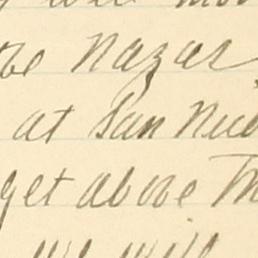 the Nazar
at San Nico
get above Th
we will